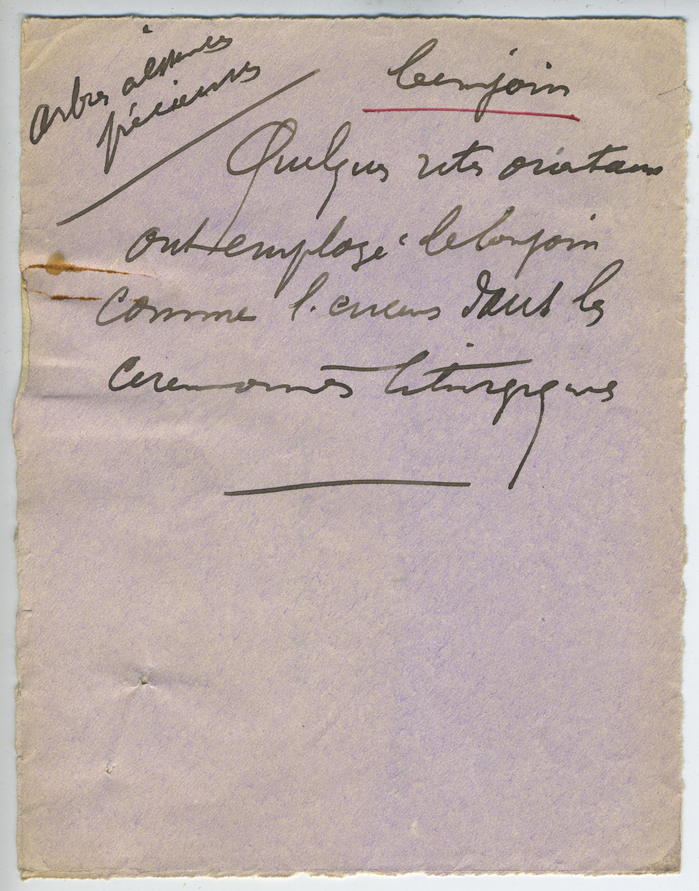 arbres à essences
précieuses
benjoin
Quelques rites orientaux
ont employé le benjoin
comme l'encens dans les
ceremonies liturgiques